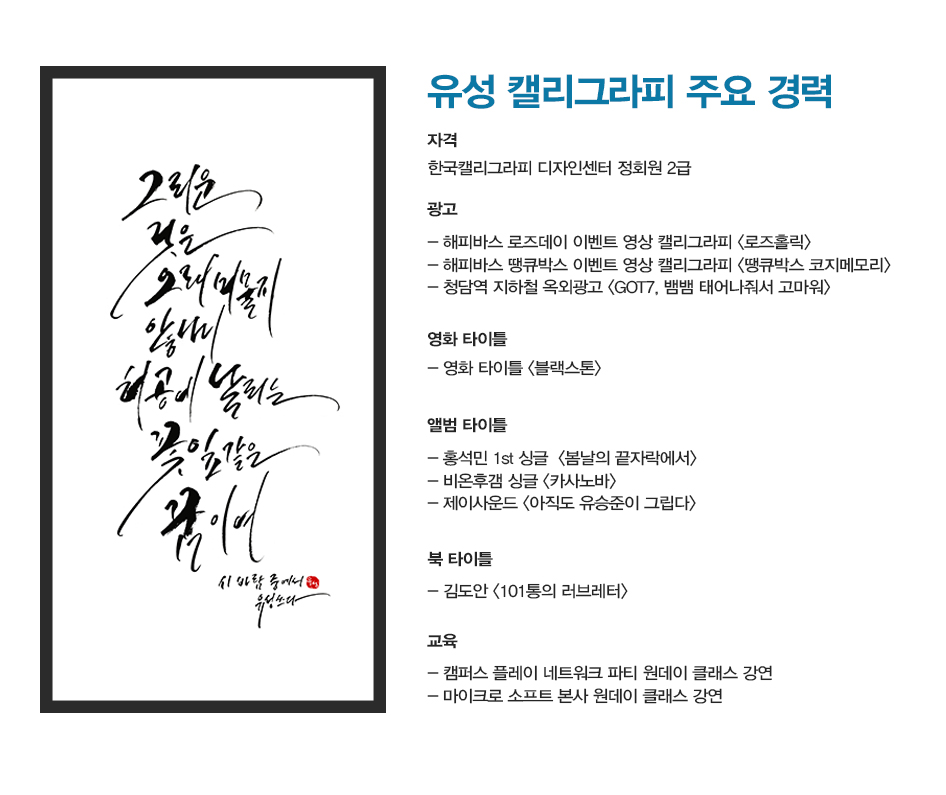 그리운
것은
오래 머물지
않나니
허공에 날리는
꽃잎 같은
꿈이여
시 바람 중에서
유성쓰다
유성 캘리그라피 주요 경력
자격
한국캘리그라피 디자인센터 정회원 2급
광고
- 해피바스 로즈데이 이벤트 영상 캘리그라피 <로즈홀릭>
- 해피바스 땡큐박스 이벤트 영상 캘리그라피 <땡큐박스 코지메모리>
- 청담역 지하철 옥외광고 <GOT7, 뱀뱀 태어나줘서 고마워>
영화 타이틀
- 영화 타이틀 <블랙스톤>
앨범 타이틀
- 홍석민 1st 싱글 <봄날의 끝자락에서>
- 비온후갬 싱글 <카사노바>
- 제이사운드 <아직도 유승준이 그립다>
북 타이틀
- 김도안 <101통의 러브레터>
교육
- 캠퍼스 플레이 네트워크 파티 원데이 클래스 강연
- 마이크로 소프트 본사 원데이 클래스 강연